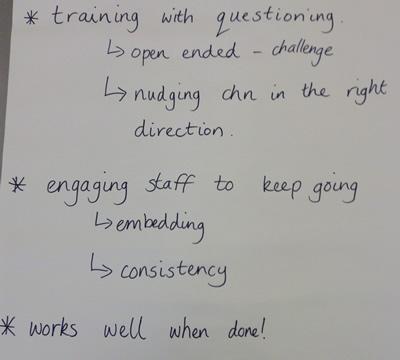 * training with questioning.
↳ open ended - challenge
↳ nudging chn in the right
direction.
* engaging staff to keep going
↳ embedding
↳ consistency
* works well when done!